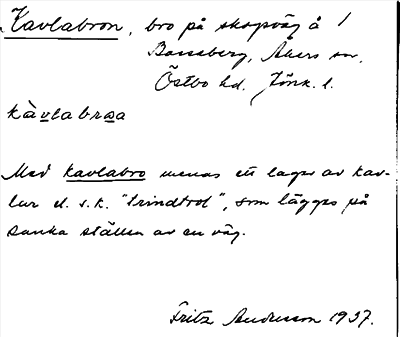 Kavlabron, bro på skogsväg å /
Bassaberg, Åkers sn,
Östbo hd. Jönk. l.
kàvlabroa
Med kavlabro menas ett lager av kav-
lar el. s.k. "trindtrol", som lägges på
sanka ställen av en väg.
Fritz Andersson 1937.